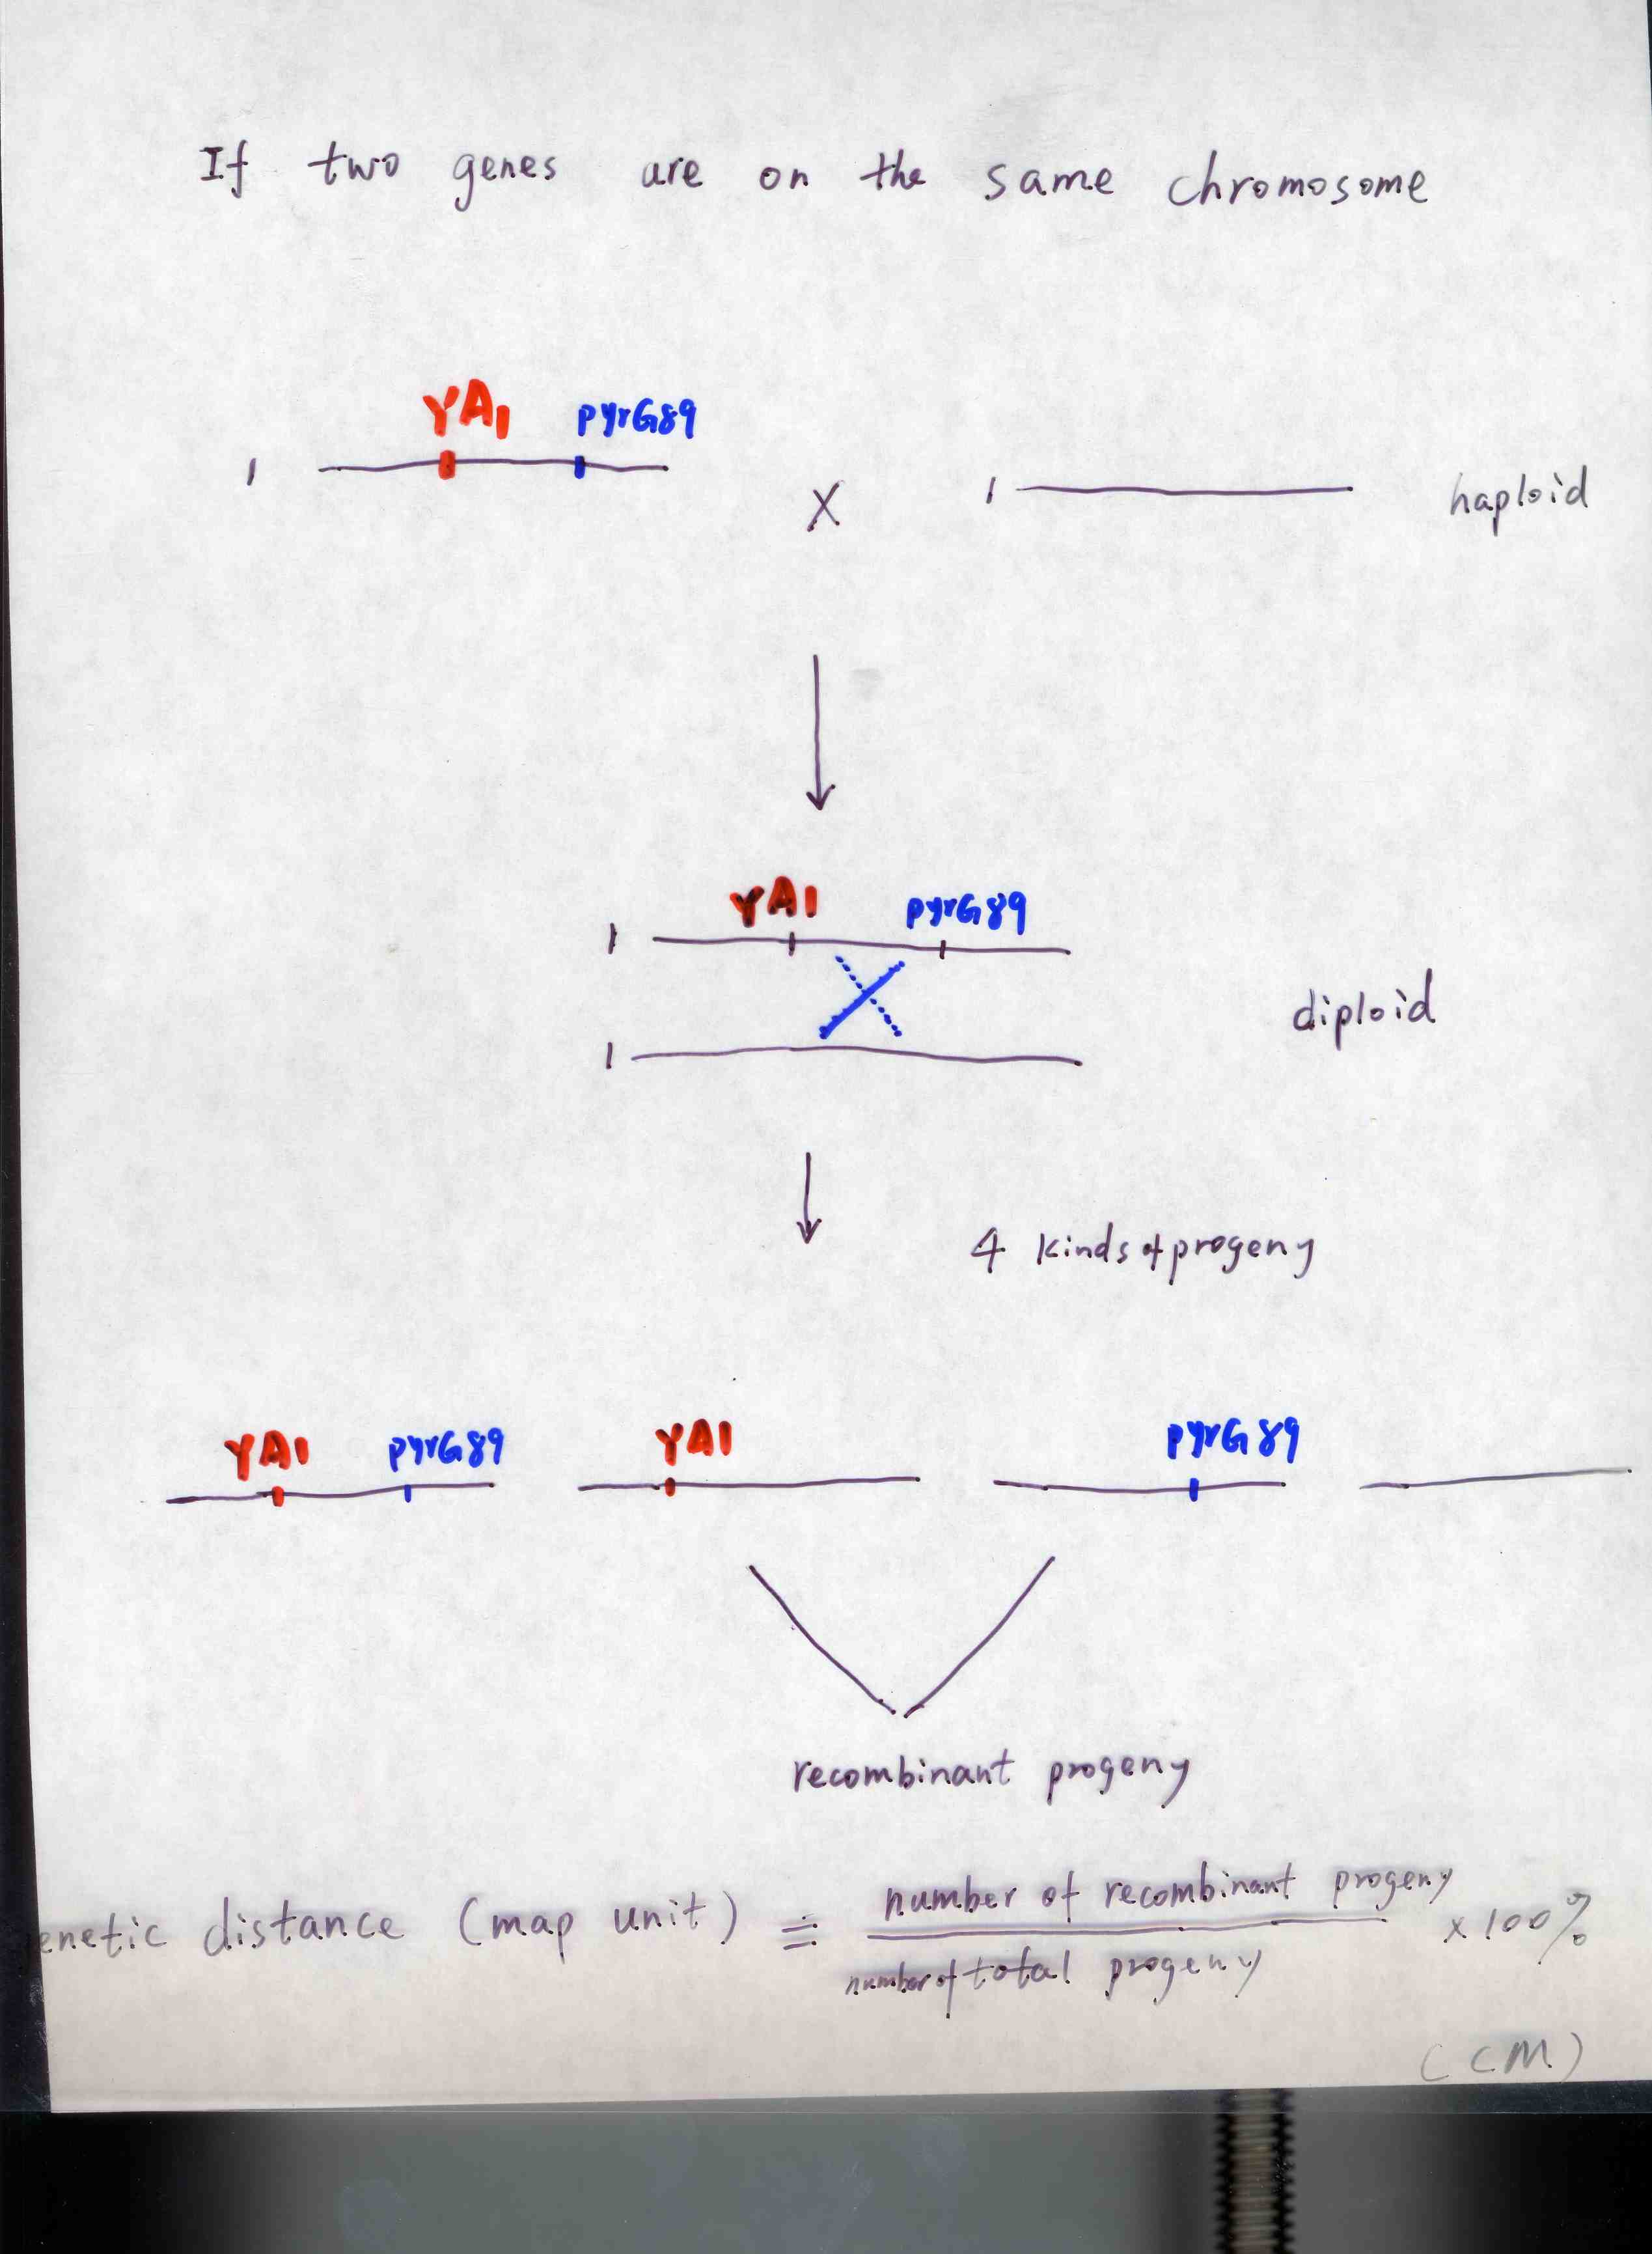 If two genes are on the same chromosome
YA1 pyrG89
1 X 1 haploid
YA1 pyrG89
1
diploid
1
4 kinds of progeny
YA1 pyrG89 YA1 pyrG89
recombinant progeny
enetic distance (map unit) = number of recombinant progeny
number of total progeny
x 100%
(cM)